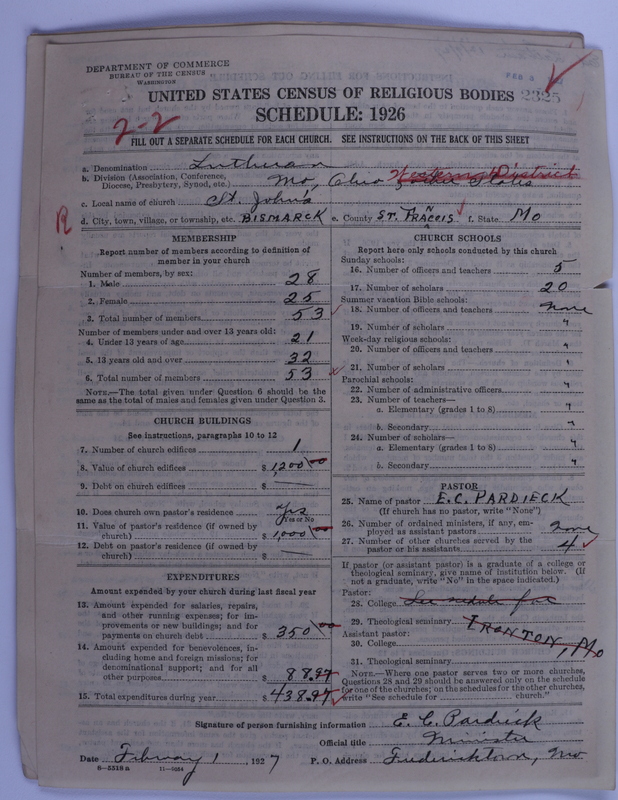 DEPARTMENT OF COMMERCE
BUREAU OF THE CENSUS
WASHINGTON
FEB 8
2325
UNITED STATES CENSUS OF RELIGIOUS BODIES
SCHEDULE: 1926
2-2
FILL OUT A SEPARATE SCHEDULE FOR EACH CHURCH. SEE INSTRUCTIONS ON THE BACK OF THIS SHEET
a. Denomination Lutheran
b. Division (Association, Conference, Diocese, Presbytery, Synod, etc.) Mo, Ohio States Western District
c. Local name of church St. John's
R
d. City, town, village, or township, etc. BISMARCK e. County ST. FRANCIS f. State Mo
MEMBERSHIP
Report number of members according to definition of
member in your church
Number of members, by sex:
1. Male 28
2. Female 25
3. Total number of members 53
Number of members under and over 13 years old:
4. Under 13 years of age 21
5. 13 years old and over 32
6. Total number of members 53
NOTE.—The total given under Question 6 should be
same as the total of males and females given under Question 3.
CHURCH BUILDINGS
See instructions, paragraphs 10 to 12
7. Number of church edifices 1
8. Value of church edifices $ 1,200 00
9. Debt on church edifices $ —
10. Does church own pastor's residence Yes
Yes or No
11. Value of pastor's residence (if owned by
church) $ 1,000
12. Debt on pastor's residence (if owned by
church) $ —
EXPENDITURES
Amount expended by your church during last fiscal year
13. Amount expended for salaries, repairs,
and other running expenses; for im-
provements or new buildings; and for
payments on church debt $ 350 00
14. Amount expended for benevolences, in-
cluding home and foreign missions; for
denominational support; and for all
other purposes $ 88.97
15. Total expenditures during year $ 438.97
CHURCH SCHOOLS
Report here only schools conducted by this church
Sunday schools:
16. Number of officers and teachers 5
17. Number of scholars 20
Summer vacation Bible schools:
18. Number of officers and teachers none
19. Number of scholars "
Week-day religious schools:
20. Number of officers and teachers "
21. Number of scholars "
Parochial schools:
22. Number of administrative officers "
23. Number of teachers—
a. Elementary (grades 1 to 8) "
b. Secondary "
24. Number of scholars—
a. Elementary (grades 1 to 8) "
b. Secondary "
PASTOR
25. Name of pastor E.C. PARDIECK
(If church has no pastor, write "None")
26. Number of ordained ministers, if any, em-
ployed as assistant pastors none
27. Number of other churches served by the
pastor or his assistants 4
If pastor (or assistant pastor) is a graduate of a college or
theological seminary, give name of institution below. (If
not a graduate, write "No" in the space indicated.)
Pastor:
28. College See schedule for
29. Theological seminary IRONTON, Mo
Assistant pastor:
30. College
31. Theological seminary
NOTE.—Where one pastor serves two or more churches,
Questions 28 and 29 should be answered only on the schedule
for one of the churches; on the schedules for the other churches,
write "See schedule for church."
Signature of person furnishing information E. C. Pardieck
Official title Minister
Date February 1, 1927 P. O. Address Fredericktown, Mo
8—5518a 11—9684